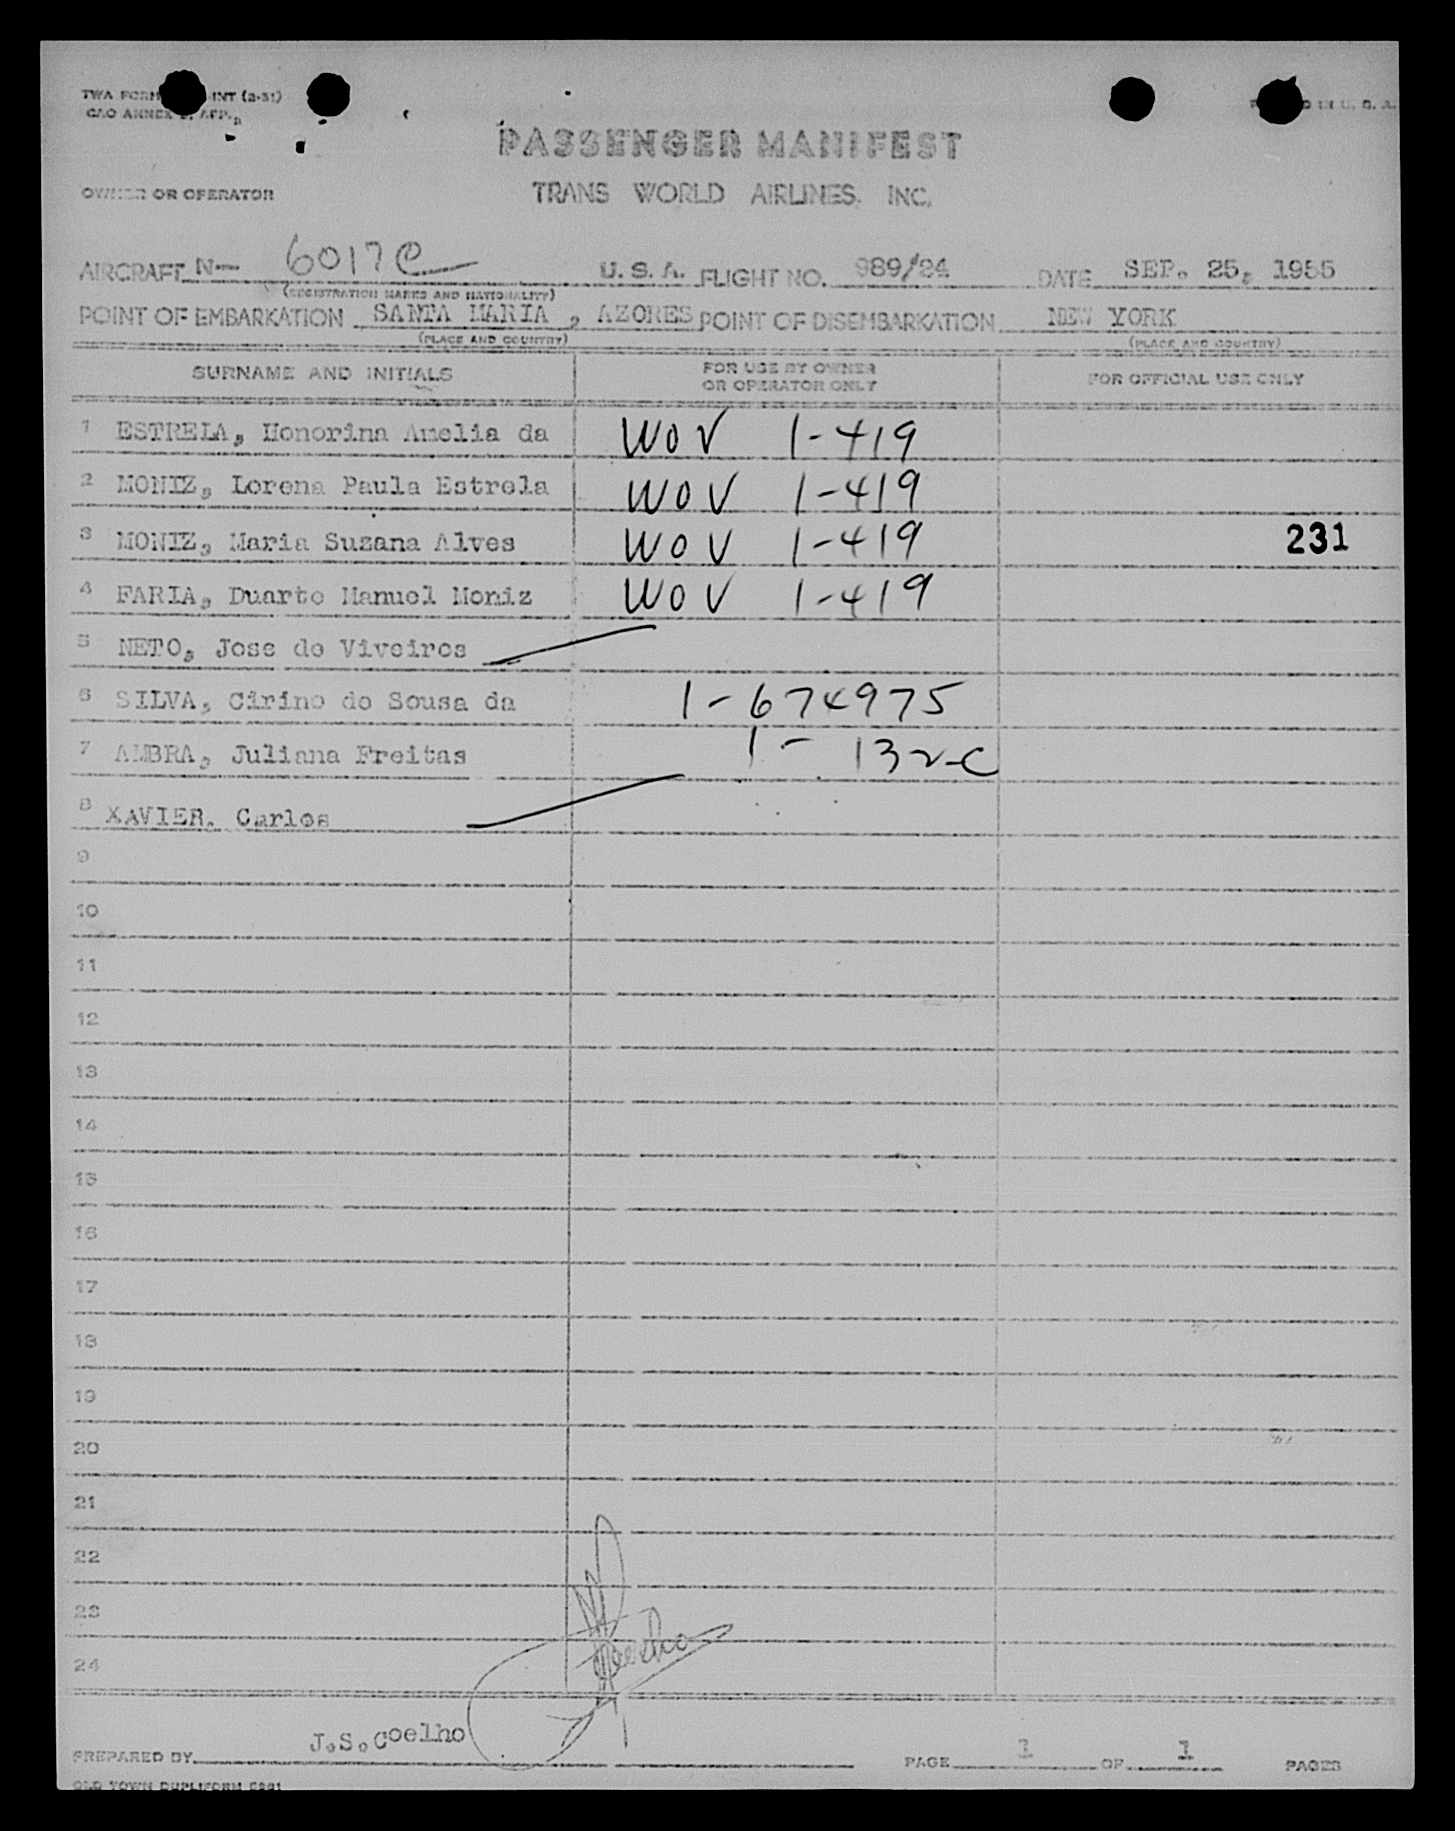 TWA FORM INT (2-51)
CAO ANNEX
IN U. S. A.
PASSENGER MANIFEST
OWNER OR OPERATOR TRANS WORLD AIRLINES, INC.
AIRCRAFT N- 6017C U. S. A. FLIGHT NO. 989/24 DATE SEP. 25, 1955
(REGISTRATION MARKS AND NATIONALITY)
POINT OF EMBARKATION SANTA MARIA, AZORES POINT OF DISEMBARKATION NEW YORK
(PLACE AND COUNTRY) (PLACE AND COUNTRY)
SURNAME AND INITIALS FOR USE BY OWNER OR OPERATOR ONLY FOR OFFICIAL USE ONLY
1 ESTRELA, Honorina Amelia da WOV 1-419
2 MONIZ, Lorena Paula Estrela WOV 1-419
3 MONIZ, Maria Suzana Alves WOV 1-419 231
4 FARIA, Duarte Manuel Moniz WOV 1-419
5 NETO, Jose de Viveiros
6 SILVA, Cirino de Sousa da 1-674975
7 AMBRA, Juliana Freitas 1-
8 XAVIER. Carlos
9
10
11
12
13
14
15
16
17
18
19
20
21
22
23
24
PREPARED BY J.S.Coelho PAGE 1 OF 1 PAGES
OLD TOWN DUPLIFORM